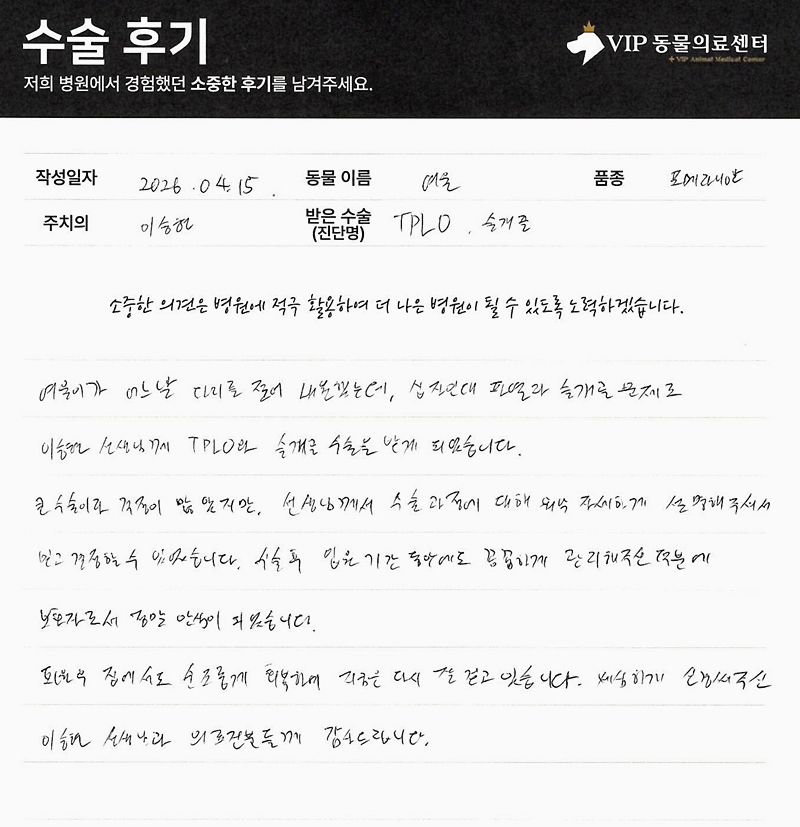 수술 후기
저희 병원에서 경험했던 소중한 후기를 남겨주세요.
VIP 동물의료센터
+ VIP Animal Medical Center
작성일자 2026.04.15. 동물 이름 여울 품종 포메라니안
주치의 이승현 받은 수술 (진단명) TPLO, 슬개골
소중한 의견은 병원에 적극 활용하여 더 나은 병원이 될 수 있도록 노력하겠습니다.
여울이가 어느날 다리를 절어 내원했는데, 십자인대 파열과 슬개골 문제로
이승현 선생님께 TPLO와 슬개골 수술을 받게 되었습니다.
큰 수술이라 걱정이 많았지만, 선생님께서 수술 과정에 대해 워낙 자세하게 설명해주셔서
믿고 결정할 수 있었습니다. 수술 후 입원 기간 동안에도 꼼꼼하게 관리해주신 덕분에
보호자로서 정말 안심이 되었습니다.
퇴원 후 집에서도 순조롭게 회복하며 지금은 다시 잘 걷고 있습니다. 세심하게 신경써주신
이승현 선생님과 의료진분들께 감사드립니다.